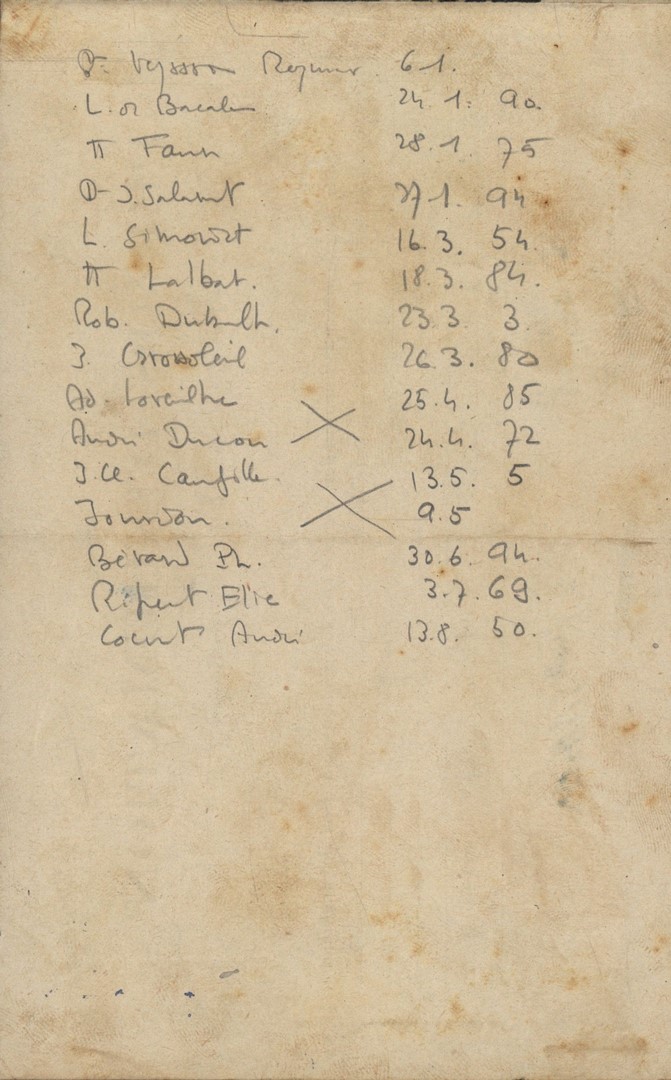 Dr Veyssou Reymur 6.1.
L. de Bacalan 24.1. 90.
π Faur 28.1. 75
Dr J. Salamit 27.1. 94
L. Simonet 16.3. 54.
π Lalbat. 18.3. 84.
Rob. 23.3. 3.
J. 26.3. 80
Ad. 25.4. 85
André Ducou 24.4. 72
J. Cl. 13.5. 5
Jourdon. 9.5
Bérard Ph. 30.6. 94.
Ripert Elie 3.7. 69.
Cocut André 13.8. 50.